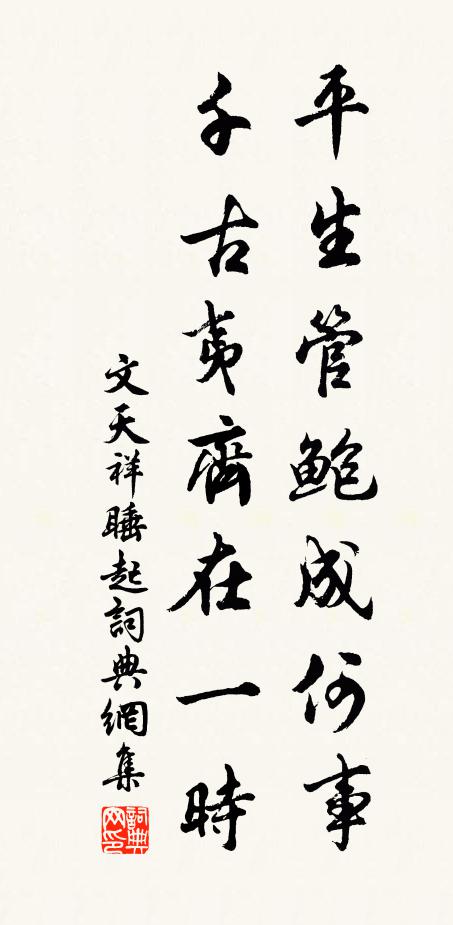 平生管鮑成何事
千古夷齊在一時
文天祥睡起詞典網集
詞典网印